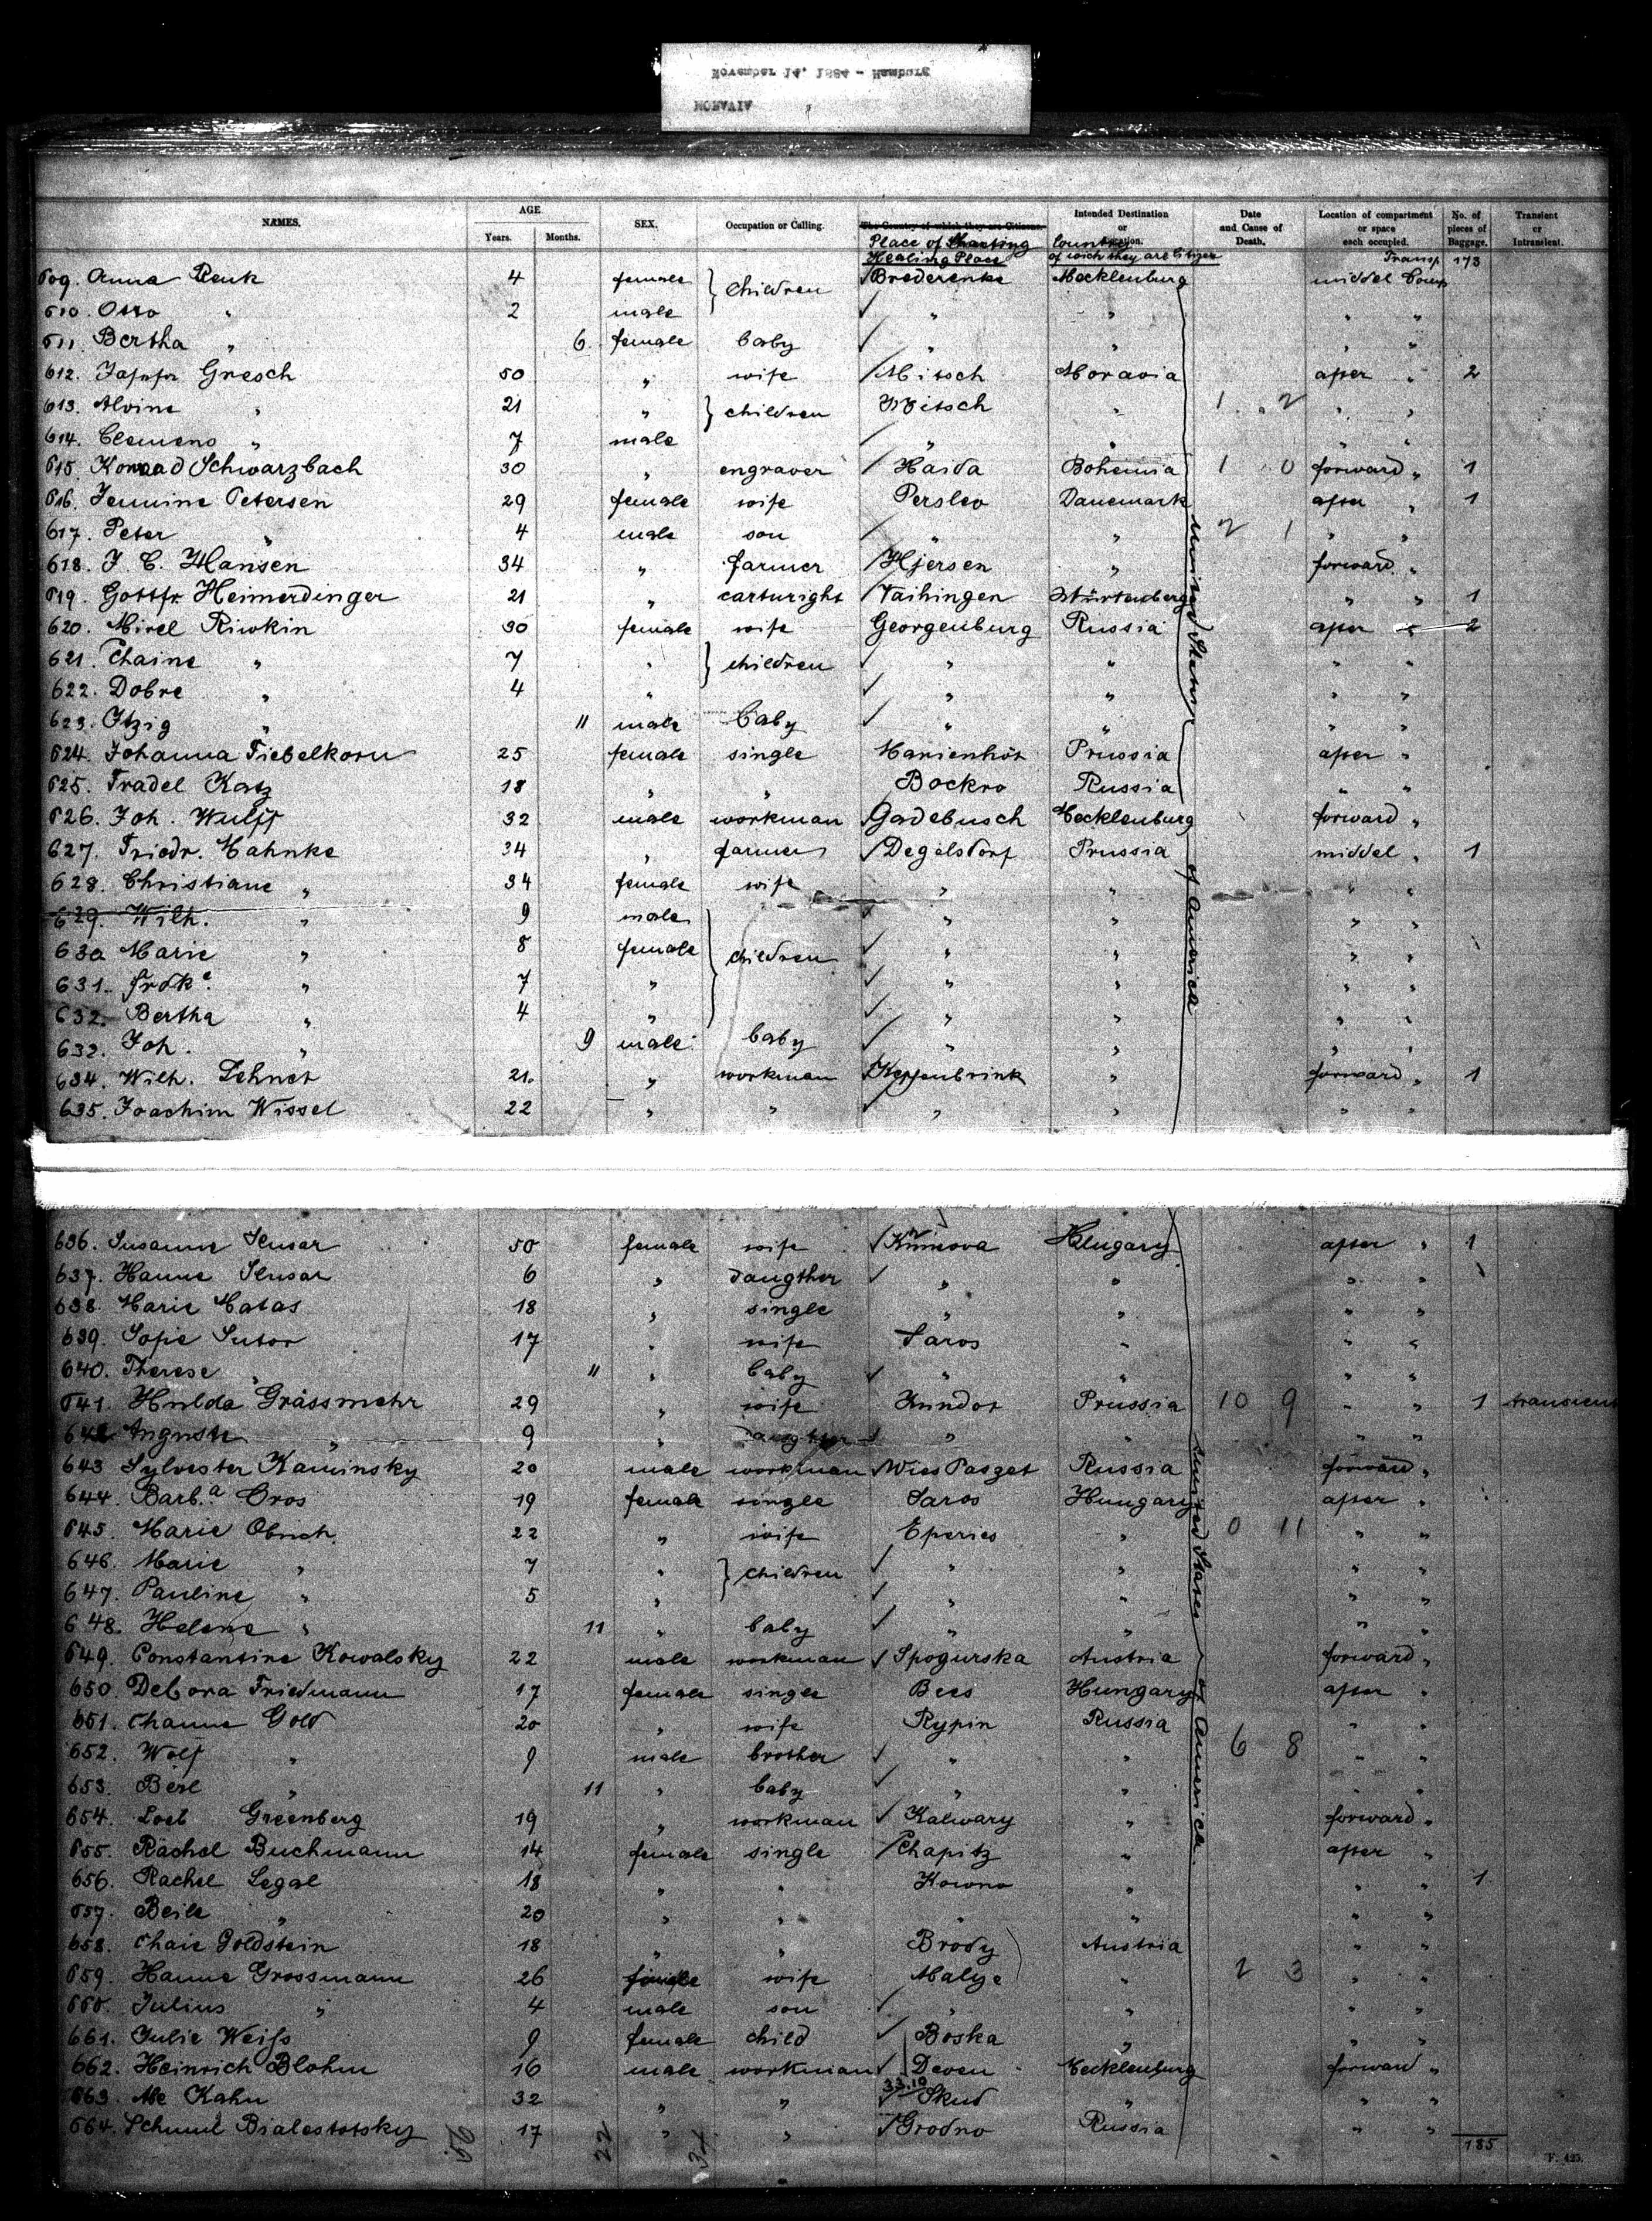 November 14, 1884 - Hamburg
MORAVIA
NAMES. AGE Years. Months. SEX. Occupation or Calling. The Country of which they are Citizens. Intended Destination or Location. Date and Cause of Death. Location of compartment or space each occupied. No. of pieces of Baggage. Transient or Intransient.
Place of Starting Country
Healing Place of wich they are Citizen Transp. 173
609. Anna Renk 4 female children Brederenke Mecklenburg middel Comp
610. Otto " 2 male " " " "
611. Bertha " 6 female baby " " " "
612. Gnesch 50 " wife Mitsch Moravia after " 2
613. Alvine " 21 " children Witsch " 1 . 2 " "
614. Clemens " 7 male " " " "
615. Konrad Schwarzbach 30 " engraver Haida Bohemia 1 . 0 forward " 1
616. Jemmine Petersen 29 female wife Perslev Danemark after " 1
617. Peter " 4 male son " " 2 1 " "
618. J. C. Hansen 34 " farmer Hjersen " forward "
619. Gottfr. Heimerdinger 21 " cartwright Vaihingen Würtenberg " " 1
620. Mirel Riwkin 30 female wife Georgenburg Russia after " 2
621. Chaine " 7 " children " " " "
622. Dobre " 4 " " " " "
623. Itzig " 11 male baby " " " "
624. Johanna Fiebelkorn 25 female single Marienhöt Prussia after "
625. Fradel Katz 18 " " Bockro Russia " "
626. Joh. Wulff 32 male workman Gadebusch Mecklenburg forward "
627. Friedr. Hahnke 34 " farmer Degelsdorf Prussia middel " 1
628. Christiane " 34 female wife " " " "
629. Wilh. " 9 male children " " " "
630 Marie " 8 female " " " "
631. Frdke. " 7 " " " " "
632. Bertha " 4 " " " " "
632. Joh. " 9 male baby " " " "
634. Wilh. Lehnet 21. " workman Keffenbrink " forward " 1
635. Joachim Wissel 22 " " " " " "
United States of America
636. Susanne Slusar 50 female wife Kumova Hungary after " 1
637. Hanne Slusar 6 " daugther " " " "
638. Marie Matas 18 " single " " " "
639. Sofie Sutor 17 " wife Saros " " "
640. Therese " 11 " baby " " " "
641. Hulda Grässmehr 29 " wife Kundot Prussia 10 9 " " 1 transient
642. Auguste " 9 " daugther " " " "
643 Sylvester Kaminsky 20 male workman Wies Paszet Russia forward "
644. Barb.a Oros 19 female single Saros Hungary after "
645. Marie Obrich 22 " wife Eperies " 0 11 " "
646. Marie " 7 " children " " " "
647. Pauline " 5 " " " " "
648. Helene " 11 " baby " " " "
649. Constantine Kowalsky 22 male workman Spogurska Austria forward "
650. Debora Friedmann 17 female single Bees Hungary after "
651. Channe Gold 20 " wife Rypin Russia " "
652. Wolf " 9 male brother " " 6 8 " "
653. Berl " 11 " baby " " " "
654. Loeb Greenberg 19 " workman Kalwary " forward "
655. Rachel Buchmann 14 female single Chapitz " after "
656. Rachel Segal 18 " " Kowno " " " 1
657. Beile " 20 " " " " " "
658. Chaie Goldstein 18 " " Brody Austria " "
659. Hanne Grossmann 26 female wife Malye " 2 3 " "
660. Julius " 4 male son " " " "
661. Julie Weiss 9 female child Boska " " "
662. Heinrich Blohm 16 male workman Deven Mecklenburg forward "
663. Abe Kahn 32 " " 33.19 Skud " " "
664. Schmul Bialostotsky 17 " " Grodno Russia " "
United States of America.
56 22 34 185
F. 425.